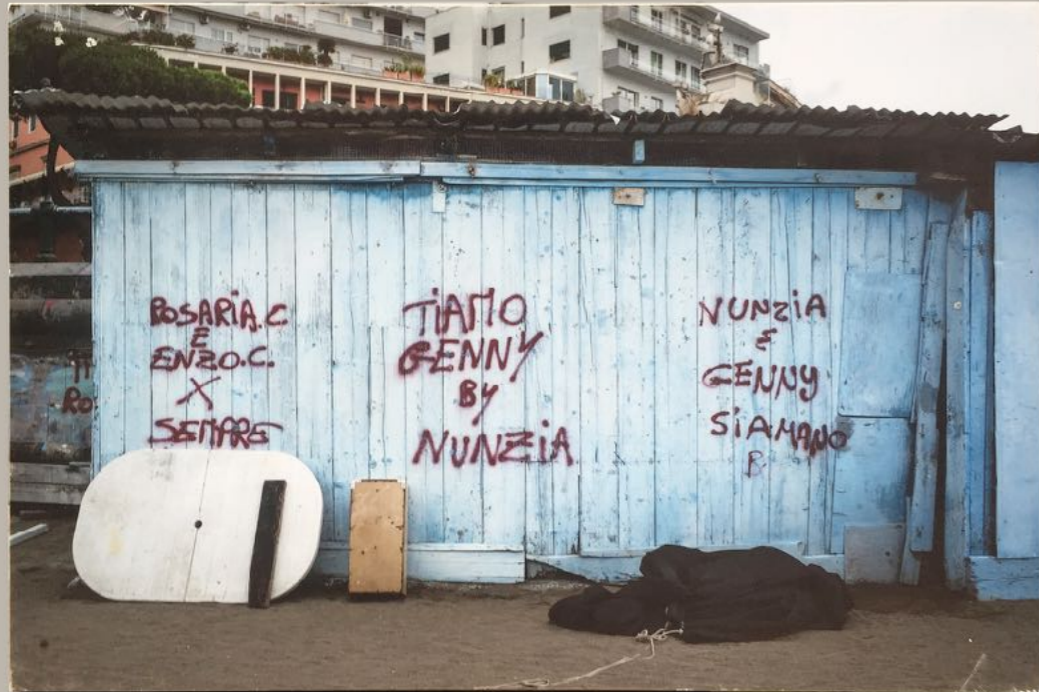 ROSARiA.C
E
ENZO.C.
X
SEMPRE
TiAMO
GENNY
By
NUNZiA
NUNZiA
E
GENNy
SiAMANO
B
Ro